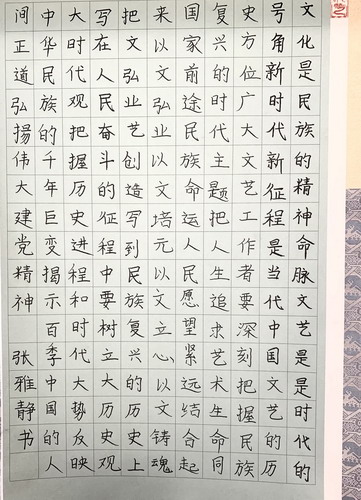 文化是民族的精神命脉文艺是是时代的
号角新时代新征程是当代中国文艺的历
史方位广大文艺工作者要深刻把握民族
复兴的时代主题把人生追求艺术生命同
国家前途民族命运人民愿望紧远结合起
来以文弘业以文培元以文立心以文铸魂
把文弘业艺创造写到民族复兴的历史上
写在人民奋斗的征程中要树立大历史观
大时代观把握历史进程和时代大势反映
中华民族的千年巨变揭示百季中国的人
间正道弘揚伟大建党精神
张雅静书